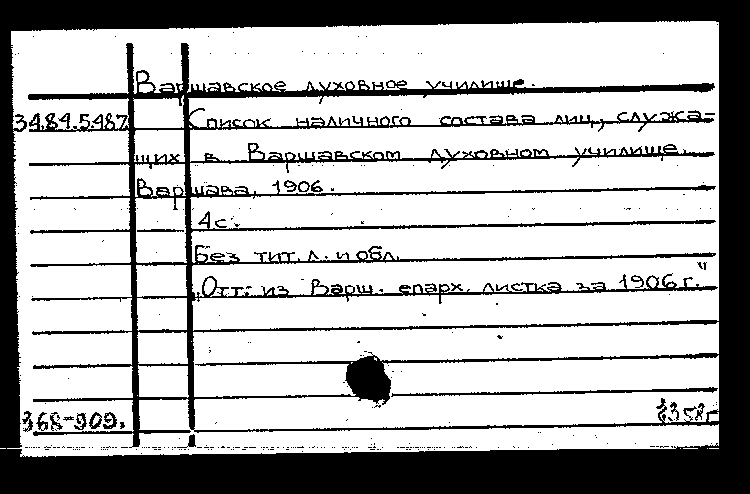 Варшавское духовное училище.
34.84.5.487. Список наличного состава лиц, служа-
щих в Варшавском духовном училище.
Варшава, 1906.
4с.
Без тит. л. и обл.
„Отт: из Варш. епарх. листка за 1906 г."
368-909.